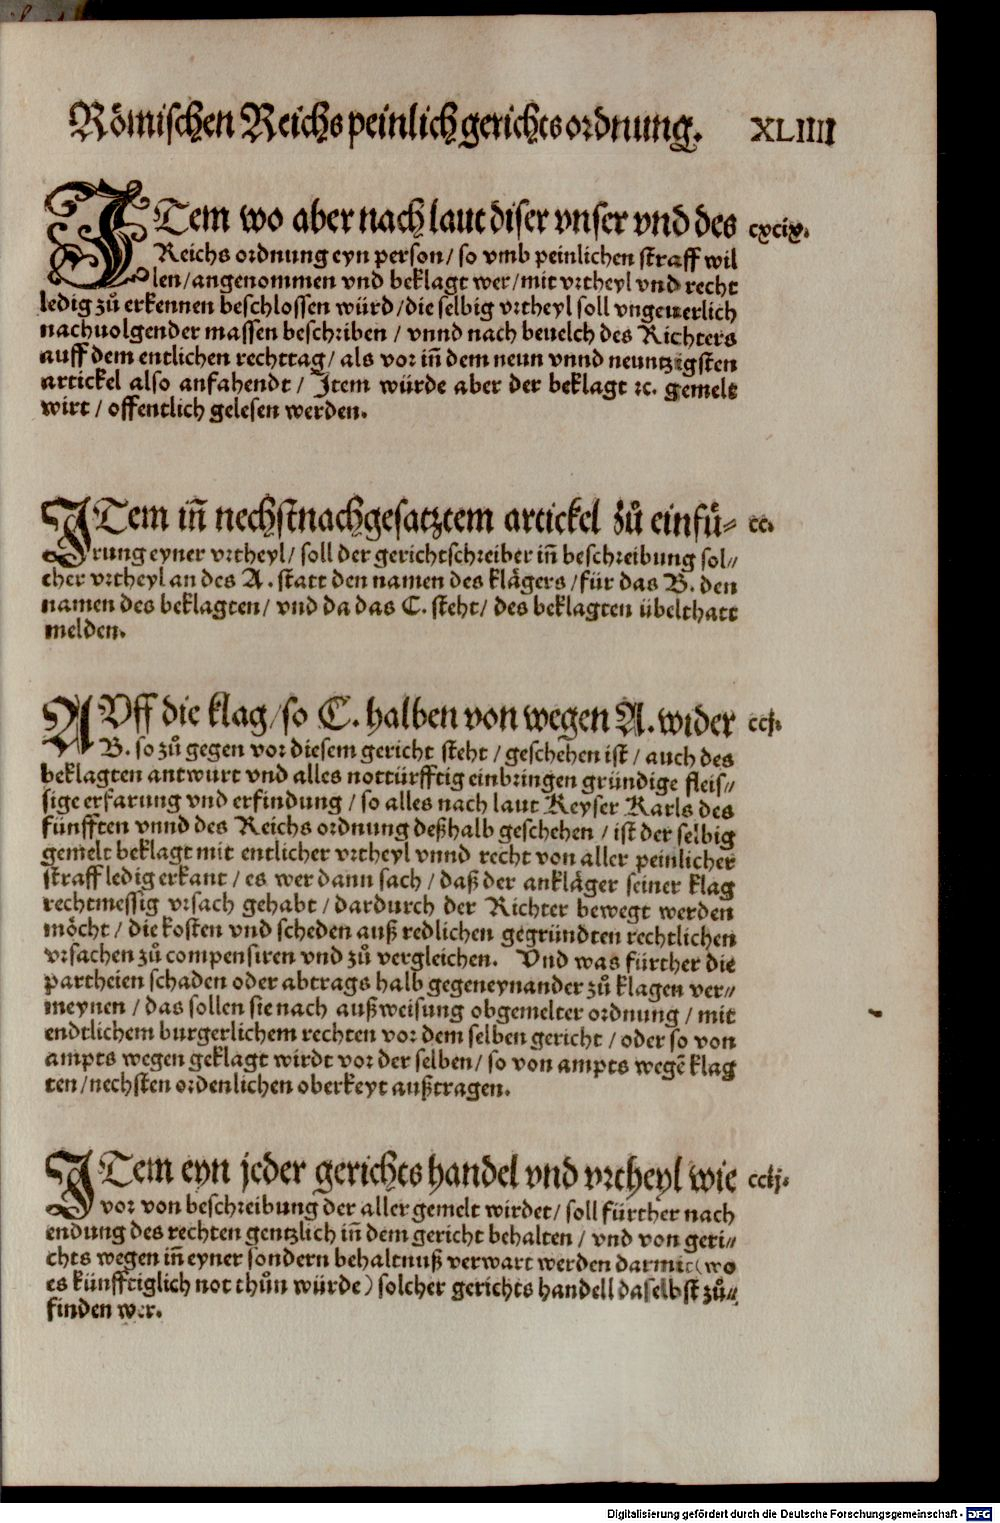 Römischen Reichs peinlich gerichts ordnung. XLIIII
ITem wo aber nach laut diser vnser vnd des cxcix.
Reichs ordnung eyn person / so vmb peinlichen straff wil
len / angenommen vnd beklagt wer / mit vrtheyl vnd recht
ledig zů erkennen beschlossen würd / die selbig vrtheyl soll vngeuerlich
nachuolgender massen beschriben / vnnd nach beuelch des Richters
auff dem entlichen rechttag / als vor iñ dem neun vnnd neuntzigsten
artickel also anfahendt / Item würde aber der beklagt ꝛc. gemelt
wirt / offentlich gelesen werden.
ITem iñ nechstnachgesatztem artickel zů einfü⸗ cc.
rung eyner vrtheyl / soll der gerichtschreiber iñ beschreibung sol⸗
cher vrtheyl an des A. statt den namen des klägers / für das B. den
namen des beklagten / vnd da das C. steht / des beklagten übelthatt
melden.
AVff die klag / so C. halben von wegen A. wider ccj.
B. so zů gegen vor diesem gericht steht / geschehen ist / auch des
beklagten antwurt vnd alles nottürfftig einbringen gründige fleis⸗
sige erfarung vnd erfindung / so alles nach laut Keyser Karls des
fünfften vnnd des Reichs ordnung deßhalb geschehen / ist der selbig
gemelt beklagt mit entlicher vrtheyl vnnd recht von aller peinlicher
straff ledig erkant / es wer dann sach / daß der ankläger seiner klag
rechtmessig vrsach gehabt / dardurch der Richter bewegt werden
möcht / die kosten vnd scheden auß redlichen gegründten rechtlichen
vrsachen zů compensiren vnd zů vergleichen. Vnd was fürther die
partheien schaden oder abtrags halb gegeneynander zů klagen ver⸗
meynen / das sollen sie nach außweisung obgemelter ordnung / mit
endtlichem burgerlichem rechten vor dem selben gericht / oder so von
ampts wegen geklagt wirdt vor der selben / so von ampts wegē klag
ten / nechsten ordenlichen oberkeyt außtragen.
ITem eyn jeder gerichts handel vnd vrtheyl wie ccij.
vor von beschreibung der aller gemelt wirdet / soll fürther nach
endung des rechten gentzlich iñ dem gericht behalten / vnd von geri⸗
chts wegen iñ eyner sondern behaltnuß verwart werden darmit (wo
es künfftiglich not thůn würde) solcher gerichts handell daselbst zů⸗
finden wer.
Digitalisierung gefördert durch die Deutsche Forschungsgemeinschaft - DFG